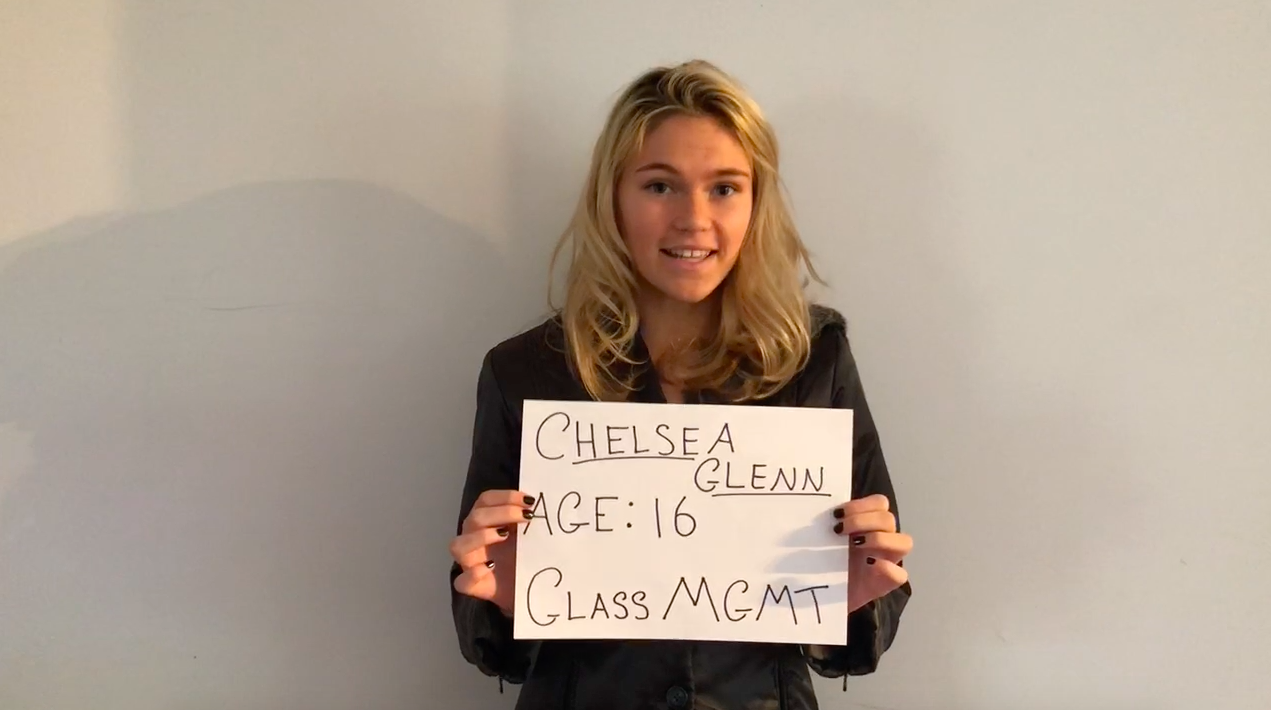 CHELSEA
GLENN
AGE: 16
GLASS MGMT